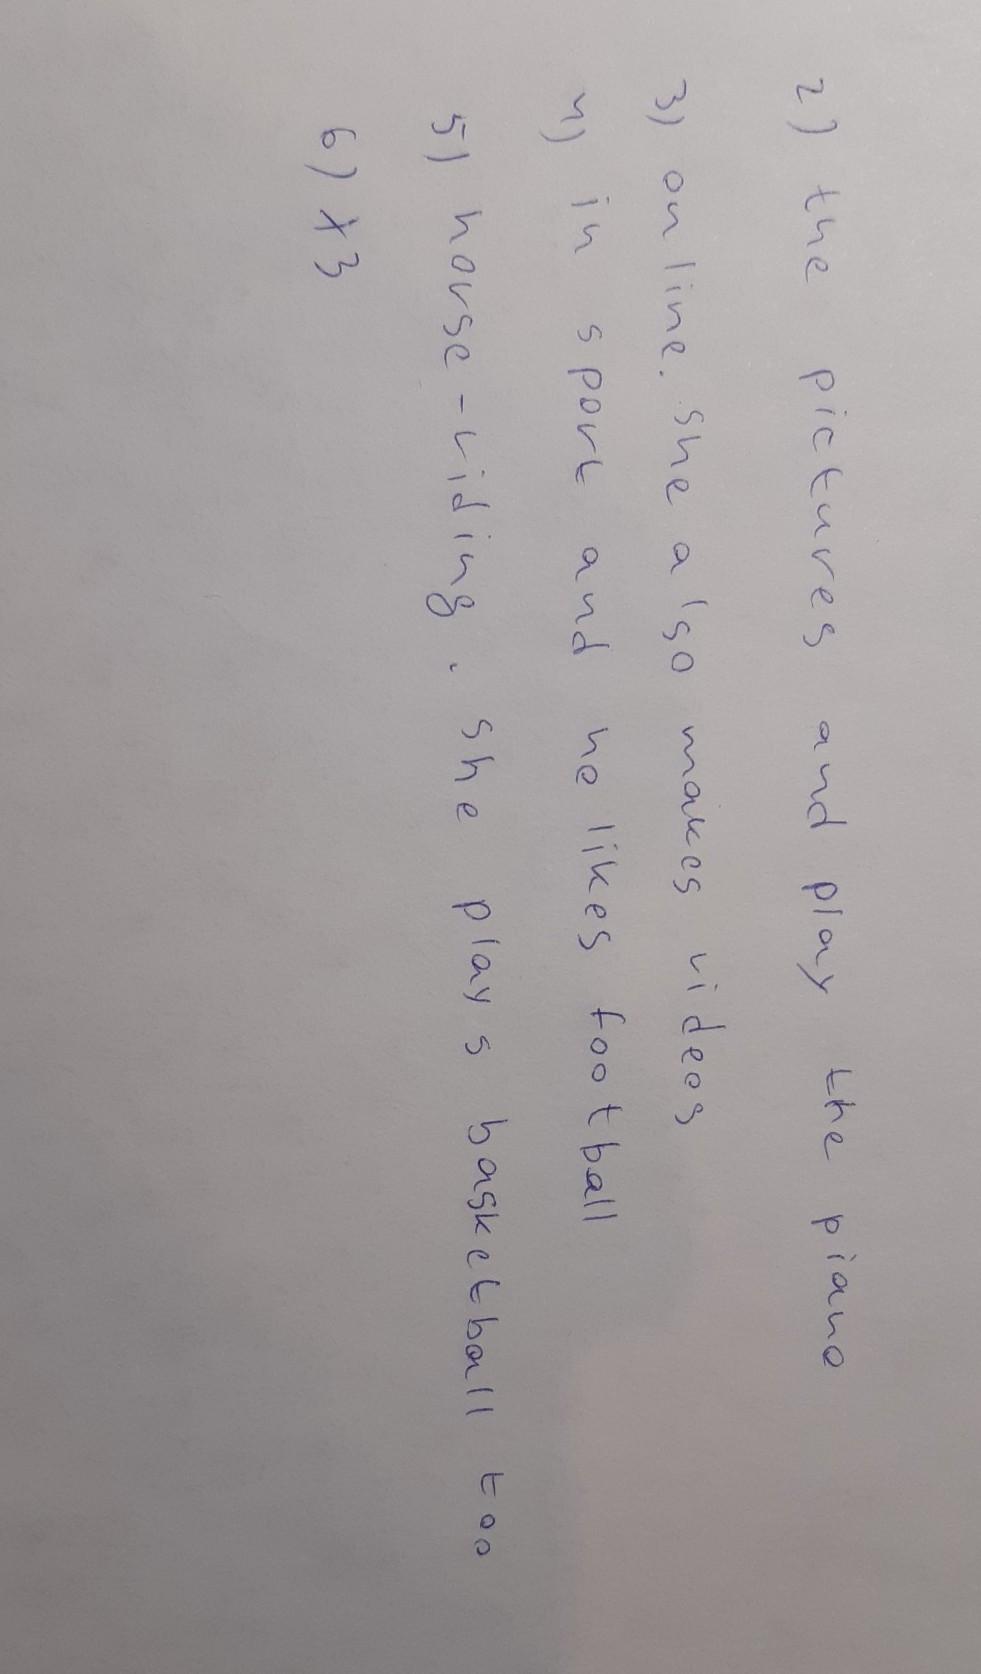 2) the pictures and play the piano
3) online. she also makes videos
4) in sport and he likes football
5) horse-riding. she plays basketball too
6) х3